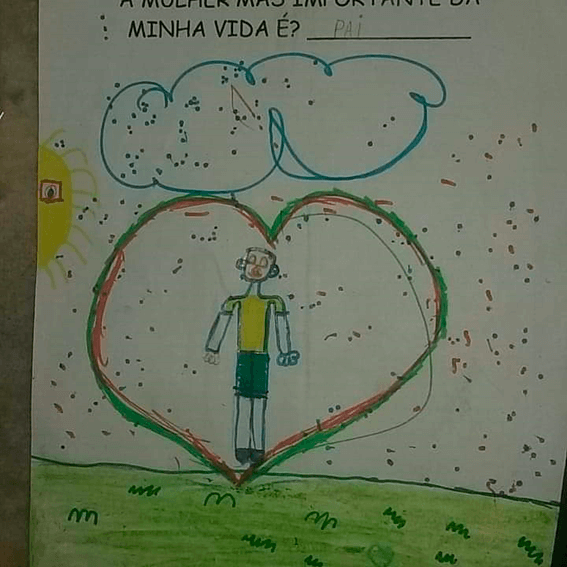 A MULHER MAS IMPORTANTE DA
MINHA VIDA É? PAI